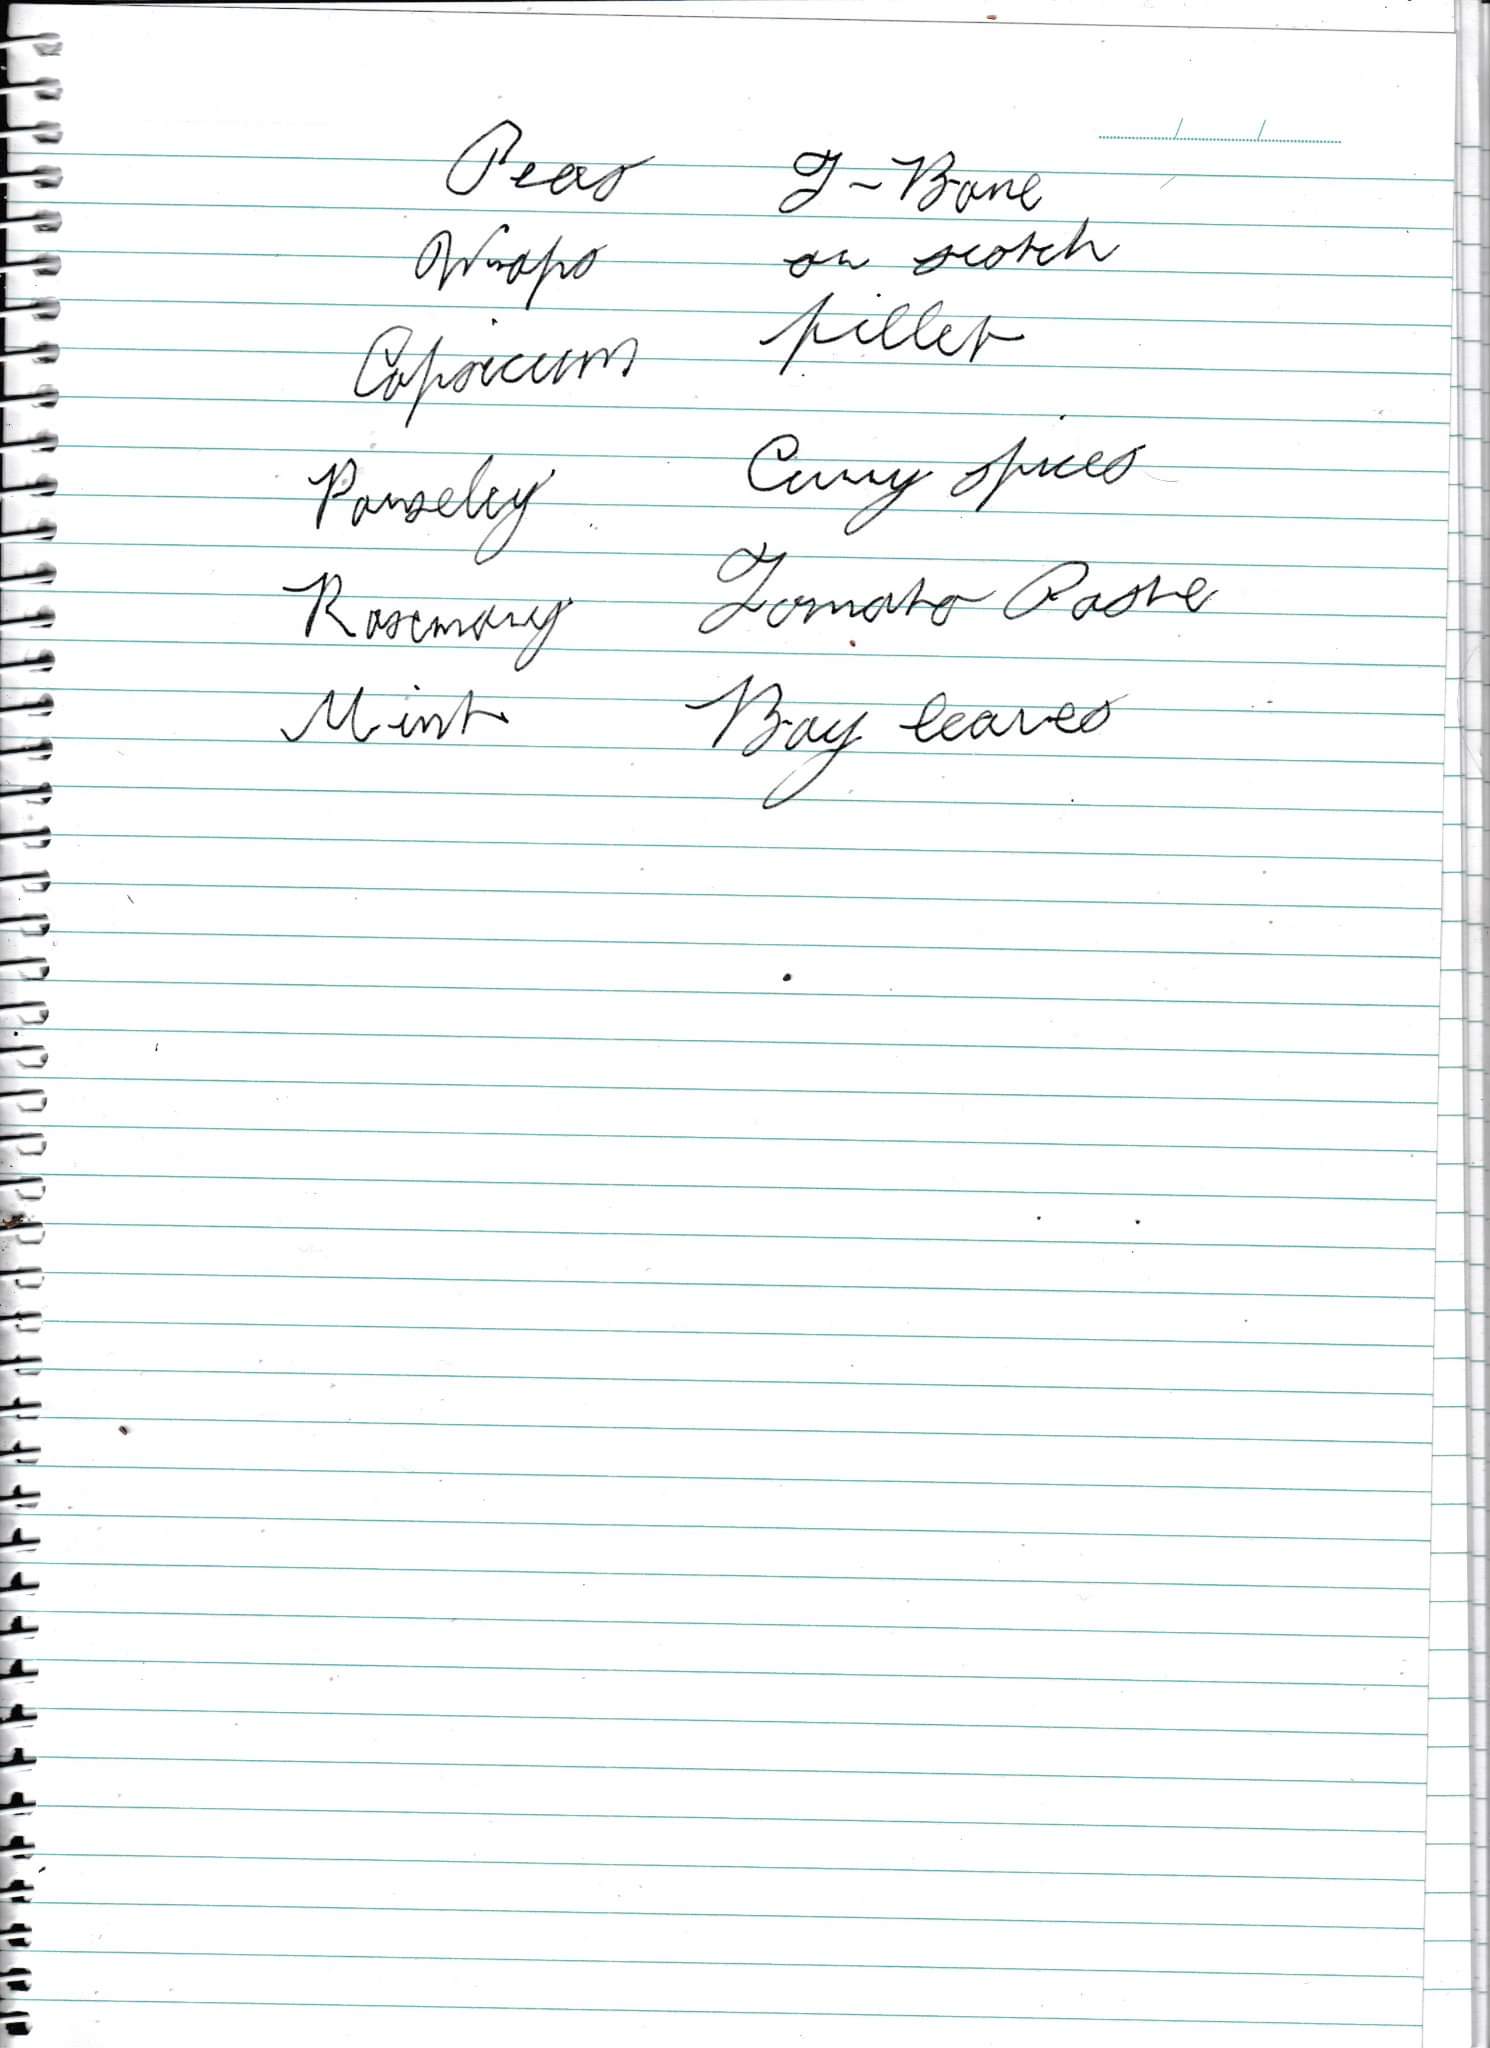 Peas
Wraps
Capsicum
Parseley
Rosemary
Mint
T-Bone
or scotch
fillet
Curry spices
Tomato Paste
Bay leaves